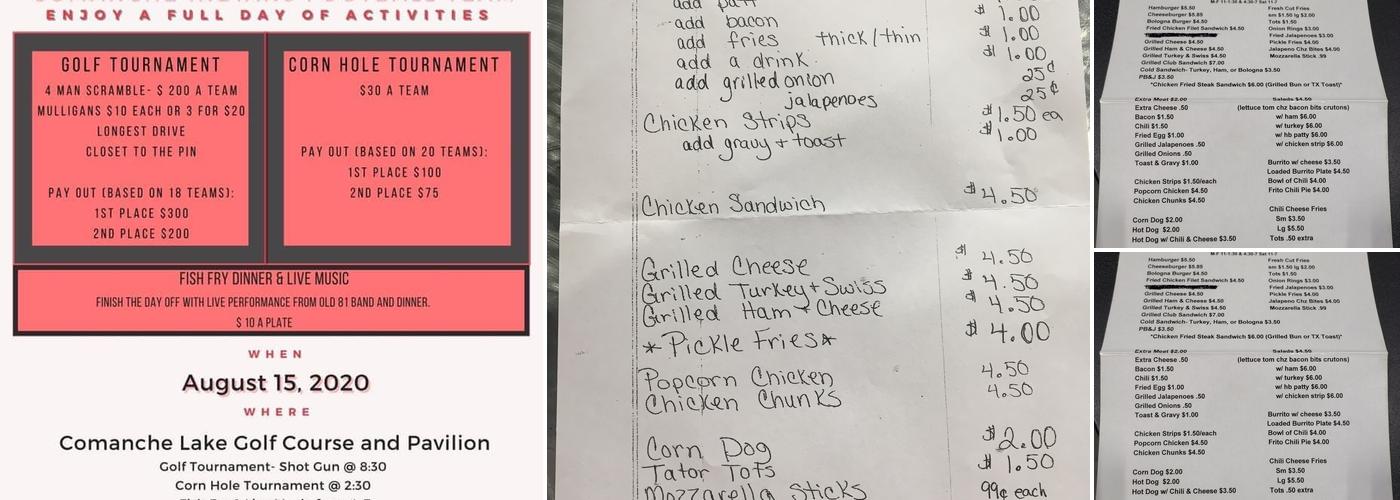 ENJOY A FULL DAY OF ACTIVITIES
GOLF TOURNAMENT
4 MAN SCRAMBLE- $ 200 A TEAM
MULLIGANS $10 EACH OR 3 FOR $20
LONGEST DRIVE
CLOSET TO THE PIN
PAY OUT (BASED ON 18 TEAMS):
1ST PLACE $300
2ND PLACE $200
CORN HOLE TOURNAMENT
$30 A TEAM
PAY OUT (BASED ON 20 TEAMS):
1ST PLACE $100
2ND PLACE $75
FISH FRY DINNER & LIVE MUSIC
FINISH THE DAY OFF WITH LIVE PERFORMANCE FROM OLD 81 BAND AND DINNER.
$ 10 A PLATE
WHEN
August 15, 2020
WHERE
Comanche Lake Golf Course and Pavilion
Golf Tournament- Shot Gun @ 8:30
Corn Hole Tournament @ 2:30
add bacon $1.00
add fries thick/thin $1.00
add a drink $1.00
add grilled onion 25¢
jalapenoes 25¢
Chicken Strips $1.50 ea
add gravy + toast $1.00
Chicken Sandwich $4.50
Grilled Cheese $4.50
Grilled Turkey + Swiss $4.50
Grilled Ham + Cheese $4.50
*Pickle Fries* $4.00
Popcorn Chicken 4.50
Chicken Chunks 4.50
Corn Dog $2.00
Tator Tots $1.50
Mozzarella Sticks 99¢ each
Hamburger $5.50 Fresh Cut Fries
Cheeseburger $5.85 sm $1.50 lg $2.00
Bologna Burger $4.50 Tots $1.50
Fried Chicken Filet Sandwich $4.50 Onion Rings $3.00
Fried Jalapenos $3.00
Grilled Cheese $4.50 Pickle Fries $4.00
Grilled Ham & Cheese $4.50 Jalapeno Chz Bites $4.00
Grilled Turkey & Swiss $4.50 Mozzarella Stick .99
Grilled Club Sandwich $7.00
Cold Sandwich- Turkey, Ham, or Bologna $3.50
PB&J $3.50
*Chicken Fried Steak Sandwich $6.00 (Grilled Bun or TX Toast)*
Extra Meat $2.00 Salads $4.50
Extra Cheese .50 (lettuce tom chz bacon bits crutons)
Bacon $1.50 w/ ham $6.00
Chili $1.50 w/ turkey $6.00
Fried Egg $1.00 w/ hb patty $6.00
Grilled Jalapenos .50 w/ chicken strip $6.00
Grilled Onions .50
Toast & Gravy $1.00 Burrito w/ cheese $3.50
Loaded Burrito Plate $4.50
Chicken Strips $1.50/each Bowl of Chili $4.00
Popcorn Chicken $4.50 Frito Chili Pie $4.00
Chicken Chunks $4.50
Chili Cheese Fries
Corn Dog $2.00 Sm $3.50
Hot Dog $2.00 Lg $5.50
Hot Dog w/ Chili & Cheese $3.50 Tots .50 extra
Hamburger $5.50 Fresh Cut Fries
Cheeseburger $5.85 sm $1.50 lg $2.00
Bologna Burger $4.50 Tots $1.50
Fried Chicken Filet Sandwich $4.50 Onion Rings $3.00
Fried Jalapenos $3.00
Grilled Cheese $4.50 Pickle Fries $4.00
Grilled Ham & Cheese $4.50 Jalapeno Chz Bites $4.00
Grilled Turkey & Swiss $4.50 Mozzarella Stick .99
Grilled Club Sandwich $7.00
Cold Sandwich- Turkey, Ham, or Bologna $3.50
PB&J $3.50
*Chicken Fried Steak Sandwich $6.00 (Grilled Bun or TX Toast)*
Extra Meat $2.00 Salads $4.50
Extra Cheese .50 (lettuce tom chz bacon bits crutons)
Bacon $1.50 w/ ham $6.00
Chili $1.50 w/ turkey $6.00
Fried Egg $1.00 w/ hb patty $6.00
Grilled Jalapenos .50 w/ chicken strip $6.00
Grilled Onions .50
Toast & Gravy $1.00 Burrito w/ cheese $3.50
Loaded Burrito Plate $4.50
Chicken Strips $1.50/each Bowl of Chili $4.00
Popcorn Chicken $4.50 Frito Chili Pie $4.00
Chicken Chunks $4.50
Chili Cheese Fries
Corn Dog $2.00 Sm $3.50
Hot Dog $2.00 Lg $5.50
Hot Dog w/ Chili & Cheese $3.50 Tots .50 extra